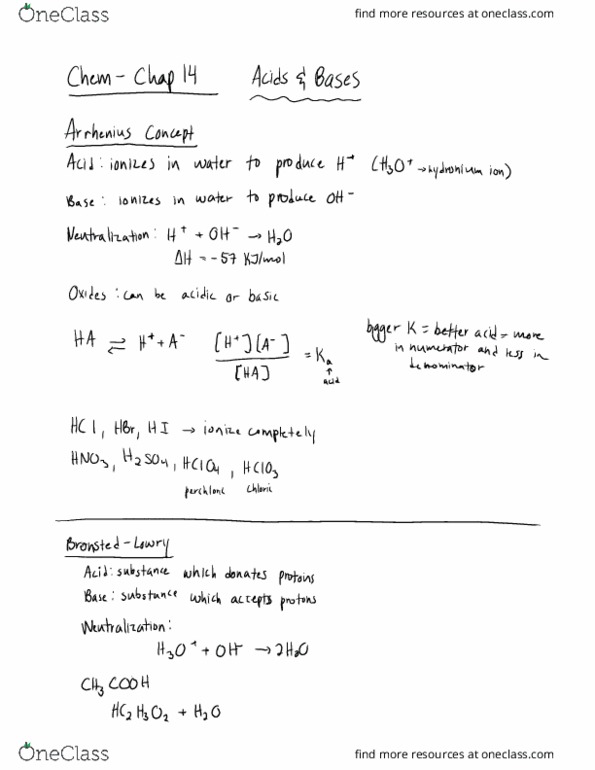 OneClass find more resources at oneclass.com
Chem - Chap 14 Acids & Bases
Arrhenius Concept
Acid: ionizes in water to produce H⁺ (H₃O⁺ → hydronium ion)
Base: ionizes in water to produce OH⁻
Neutralization: H⁺ + OH⁻ → H₂O
ΔH = -57 KJ/mol
Oxides: can be acidic or basic
HA ⇌ H⁺ + A⁻ [H⁺][A⁻] / [HA] = Ka
↑
acid
bigger K = better acid = more
in numerator and less in
denominator
HCl, HBr, HI → ionize completely
HNO₃, H₂SO₄, HClO₄, HClO₃
perchloric chloric
Bronsted-Lowry
Acid: substance which donates protons
Base: substance which accepts protons
Neutralization:
H₃O⁺ + OH⁻ → 2H₂O
CH₃COOH
HC₂H₃O₂ + H₂O
OneClass find more resources at oneclass.com